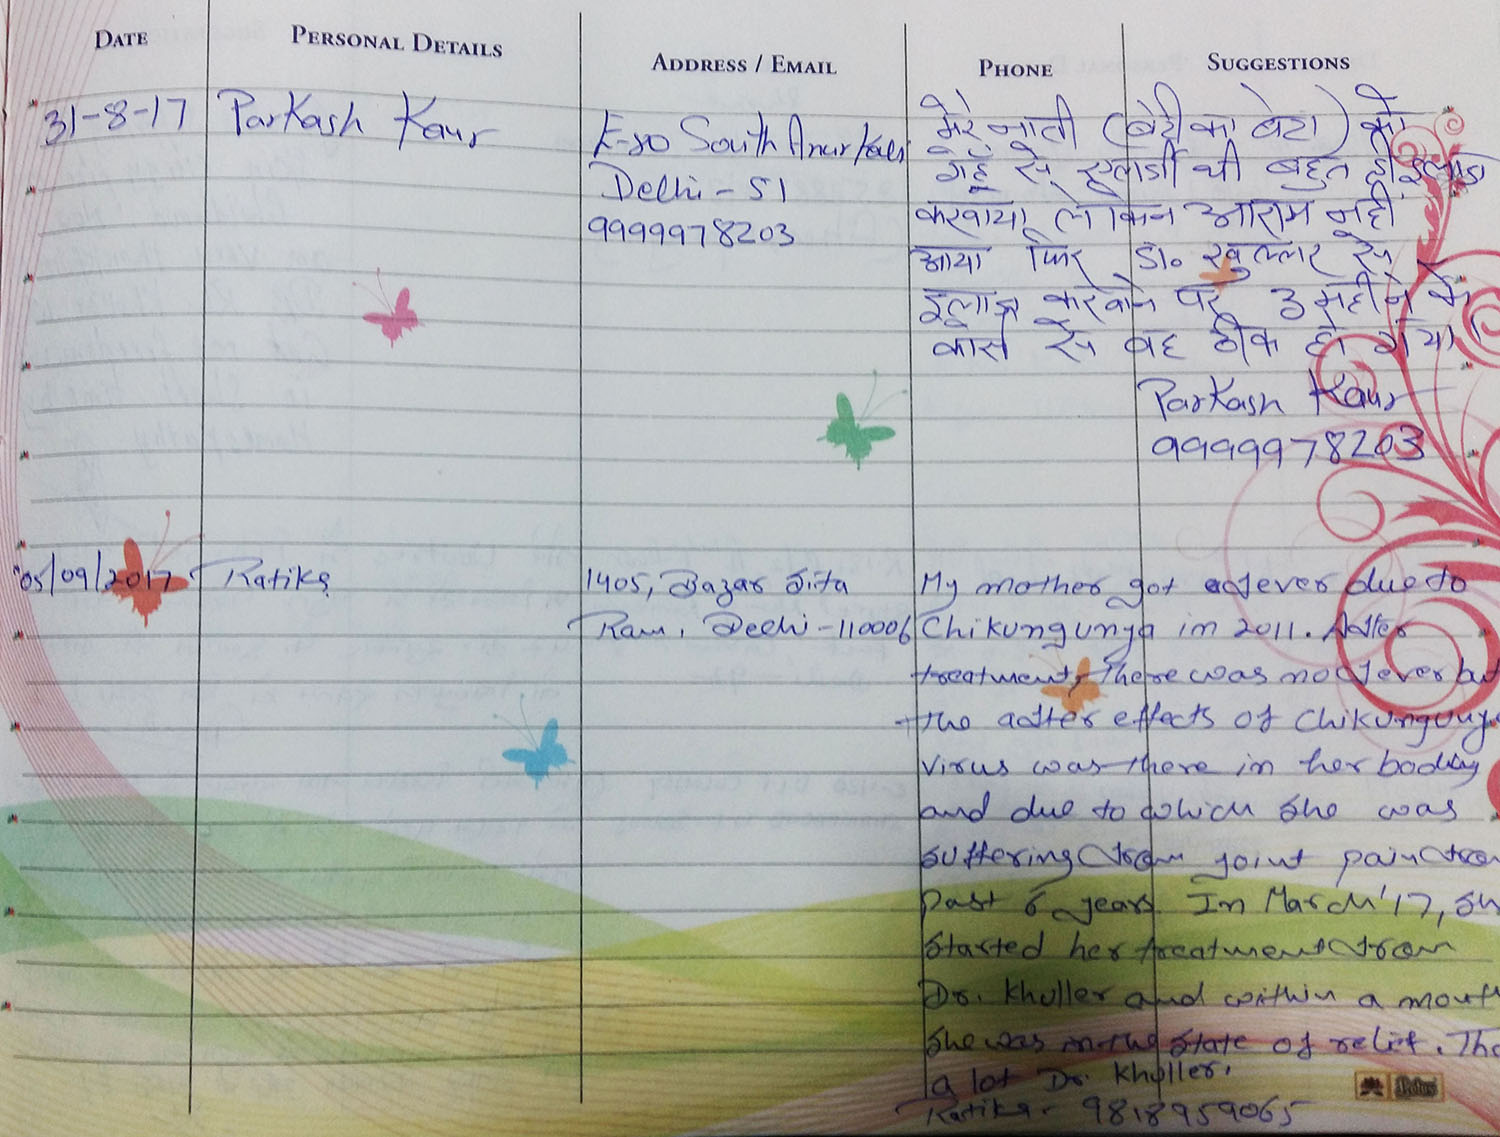 DATE PERSONAL DETAILS ADDRESS / EMAIL PHONE SUGGESTIONS
31-8-17 Parkash Kaur
E-20 South Anarkali
Delhi - 51
9999978203
मेरे नाती (बेटी का बेटा) को
गेहूँ से एलर्जी थी बहुत ही इलाज
करवाया लेकिन आराम नहीं
आया फिर डा० खुल्लर से
इलाज करवाने पर 3 महीने के
कोर्स से वह ठीक हो गया
Parkash Kaur
9999978203
05/09/2017 Ratika
1405, Bazar Sita
Ram, Delhi - 110006
My mother got a fever due to
Chikungunya in 2011. After
treatment, there was no fever but
the after effects of Chikunguny
virus was there in her body
and due to which she was
suffering from joint pain from
past 6 years. In March'17, sh
started her treatment from
Dr. Khuller and within a month
she was in the state of relief. Tha
a lot Dr. Khuller.
Ratika - 9818959065